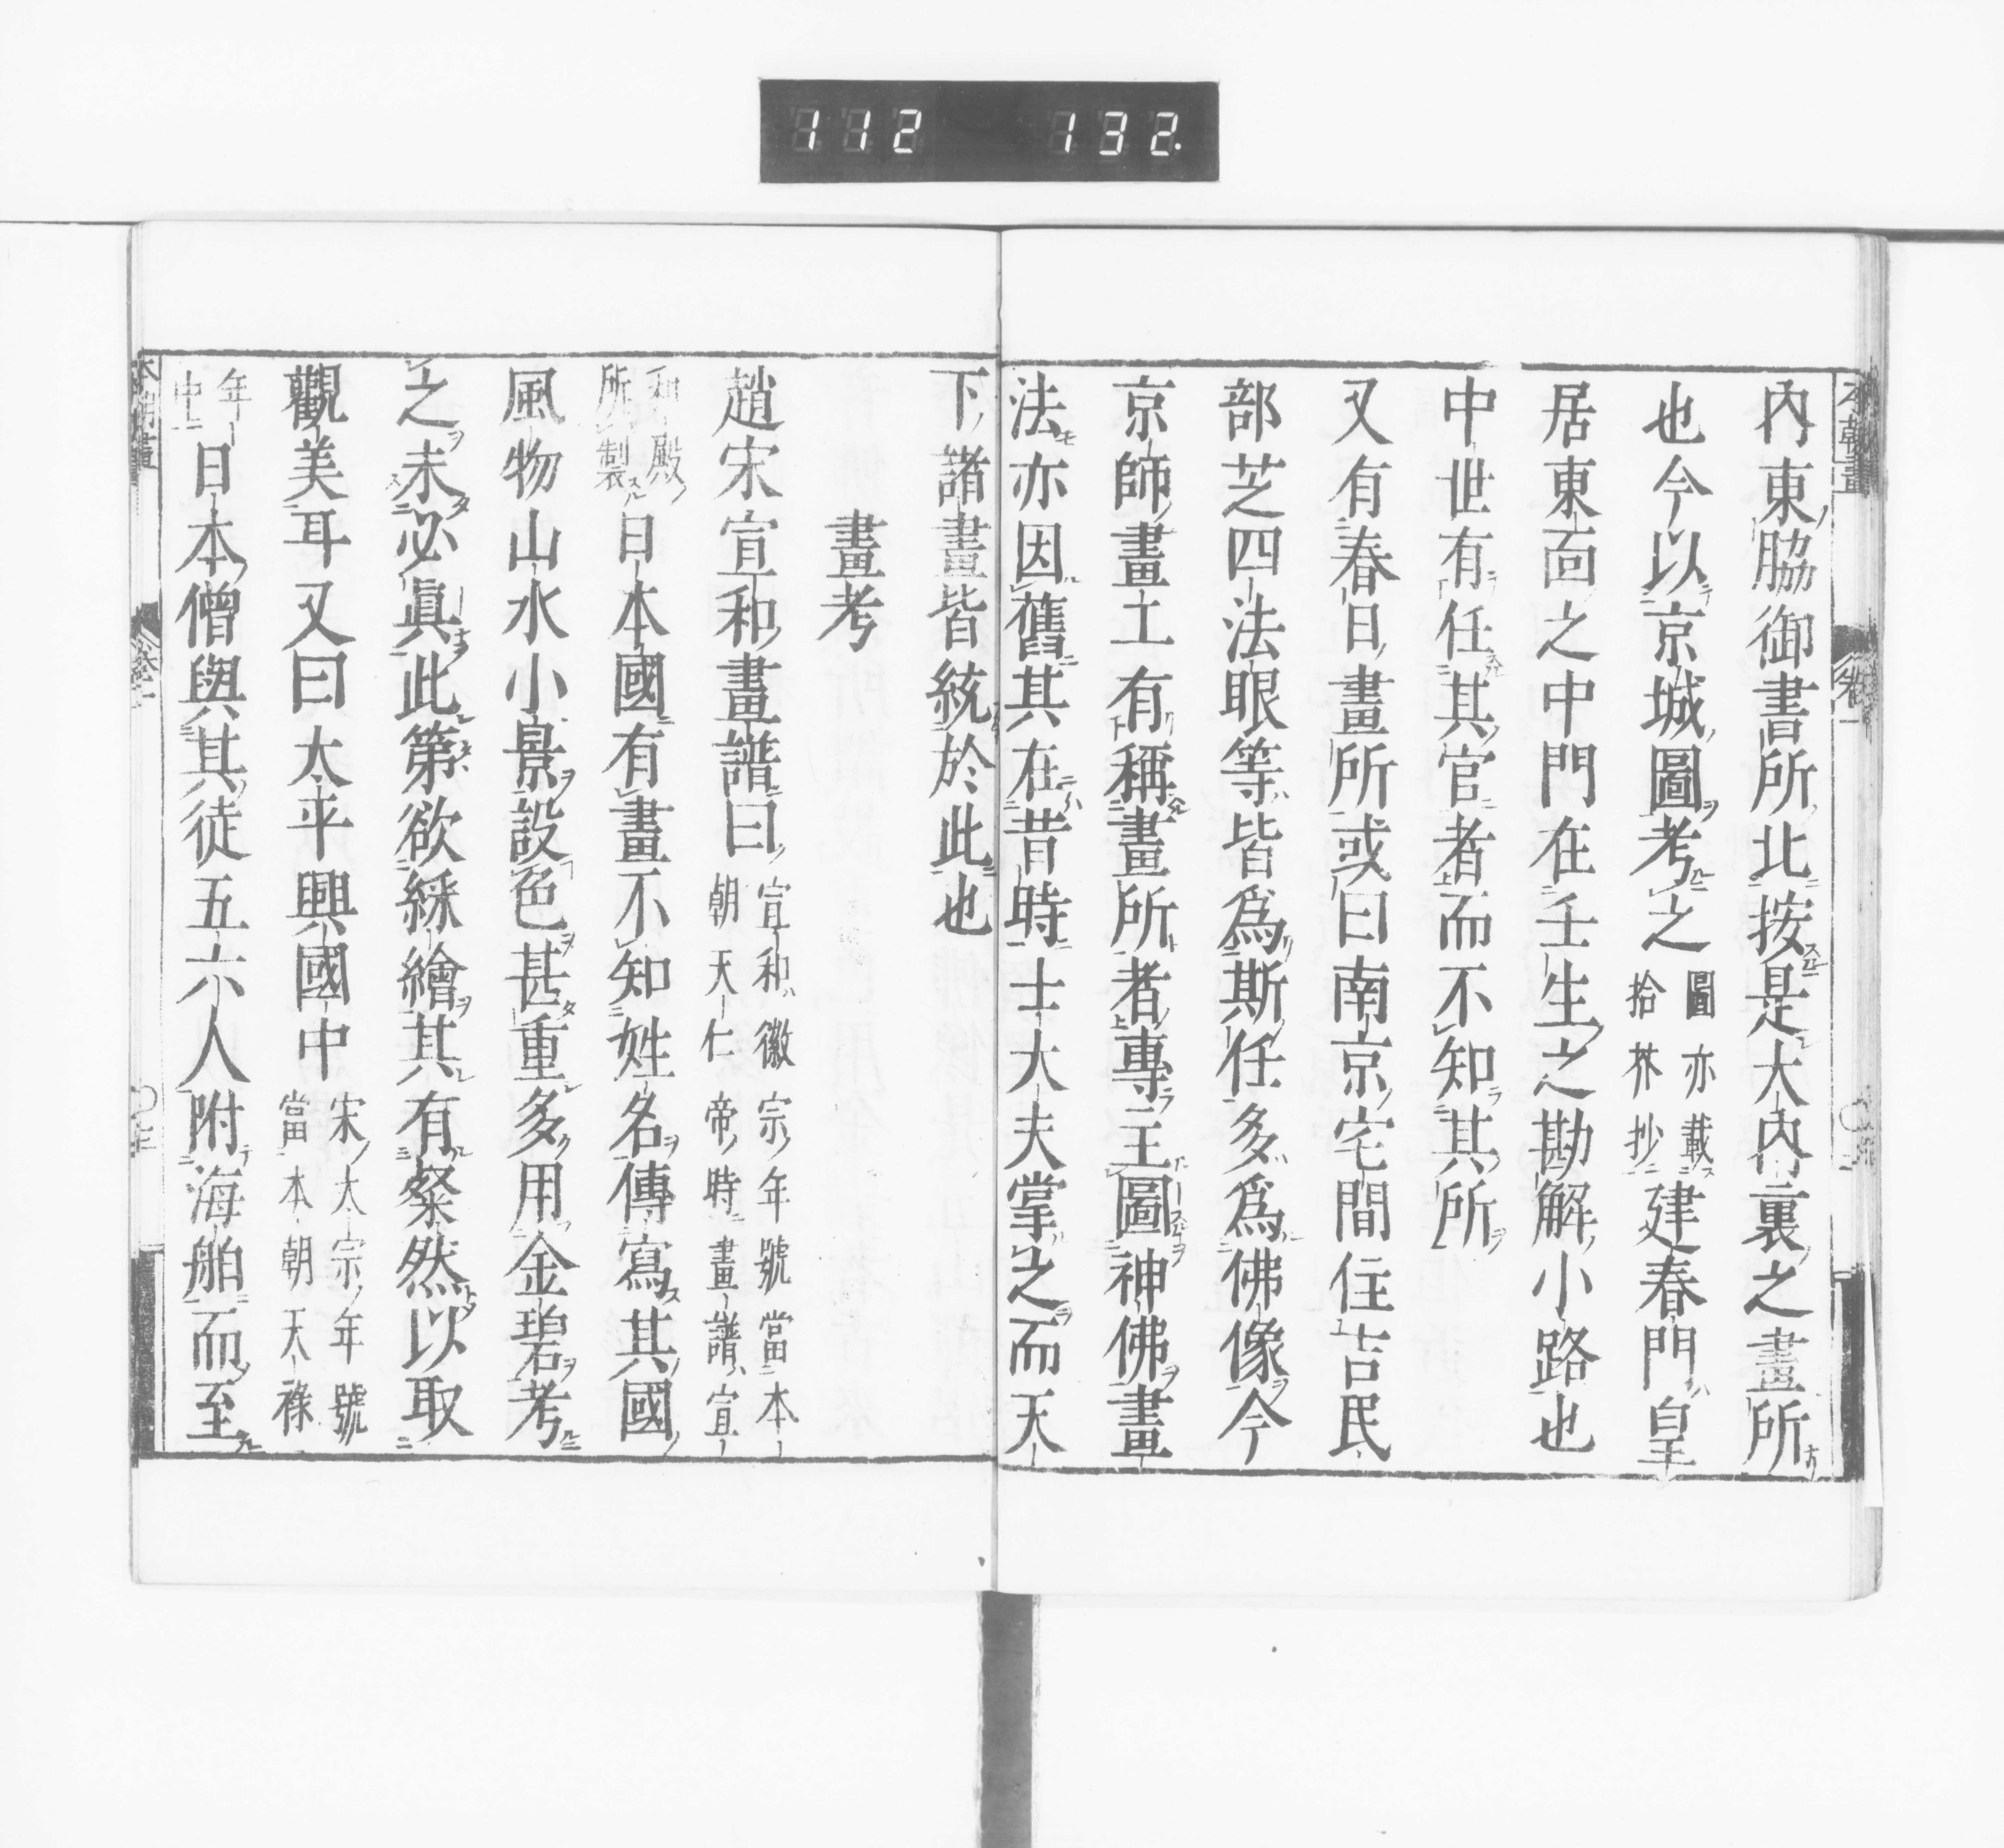 112 132.
本朝畫 卷一
內東脇御書所北按是大內裏之畫所
也今以京城圖考之圖亦載拾芥抄建春門皇
居東面之中門在壬生之勘解小路也
中世有任其官者而不知其所
又有春日畫所或曰南京宅間住吉民
部芝四法眼等皆爲斯任多爲佛像今
京師畫工有稱畫所者專主圖神佛畫
法亦因舊其在昔時士大夫掌之而天
下諸畫皆統於此也
畫考
趙宋宣和畫譜曰宣和徽宗年號當本朝天仁帝時畫譜宣
和殿所製日本國有畫不知姓名傳寫其國
風物山水小景設色甚重多用金碧考
之未必眞此第欲綵繪其有粲然以取
觀美耳又曰太平興國中宋太宗年號當本朝天祿
年中日本僧與其徒五六人附海舶而至
本朝畫 卷一